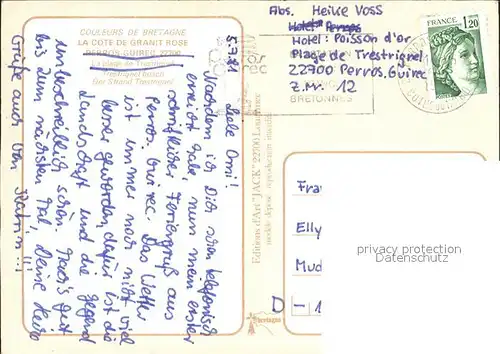 COULEURS DE BRETAGNE
LA COTE DE GRANIT ROSE
PERROS-GUIREC 22700
La plage de Trestrignel
Trestrignel beach
Der Strand Trestrignel
5.7.81
Liebe Omi!
Nachdem ich Dich schon telefonisch
erreicht habe, nun mein erster
schriftlicher Feriengruß aus
Perros-Guirec. Das Wetter
ist immer noch nicht viel
besser geworden, dafür ist die
Landschaft und die Gegend
unbeschreiblich schön. Mach's gut
bis zum nächsten Mal, Deine Heike
Grüße auch von Katrin...!!!
Editions d'Art "JACK" 22700 Louannec
modèle déposé reproduction interdite
Abs. Heike Voss
Hotel: Poisson d'or
Plage de Trestrignel
22700 Perros. Guirec
Z.nr. 12
BRETONNES
FRANCE
1,20
Frau
Elly
D - 1
Bretagne
copyright protected
www.oldthing.de